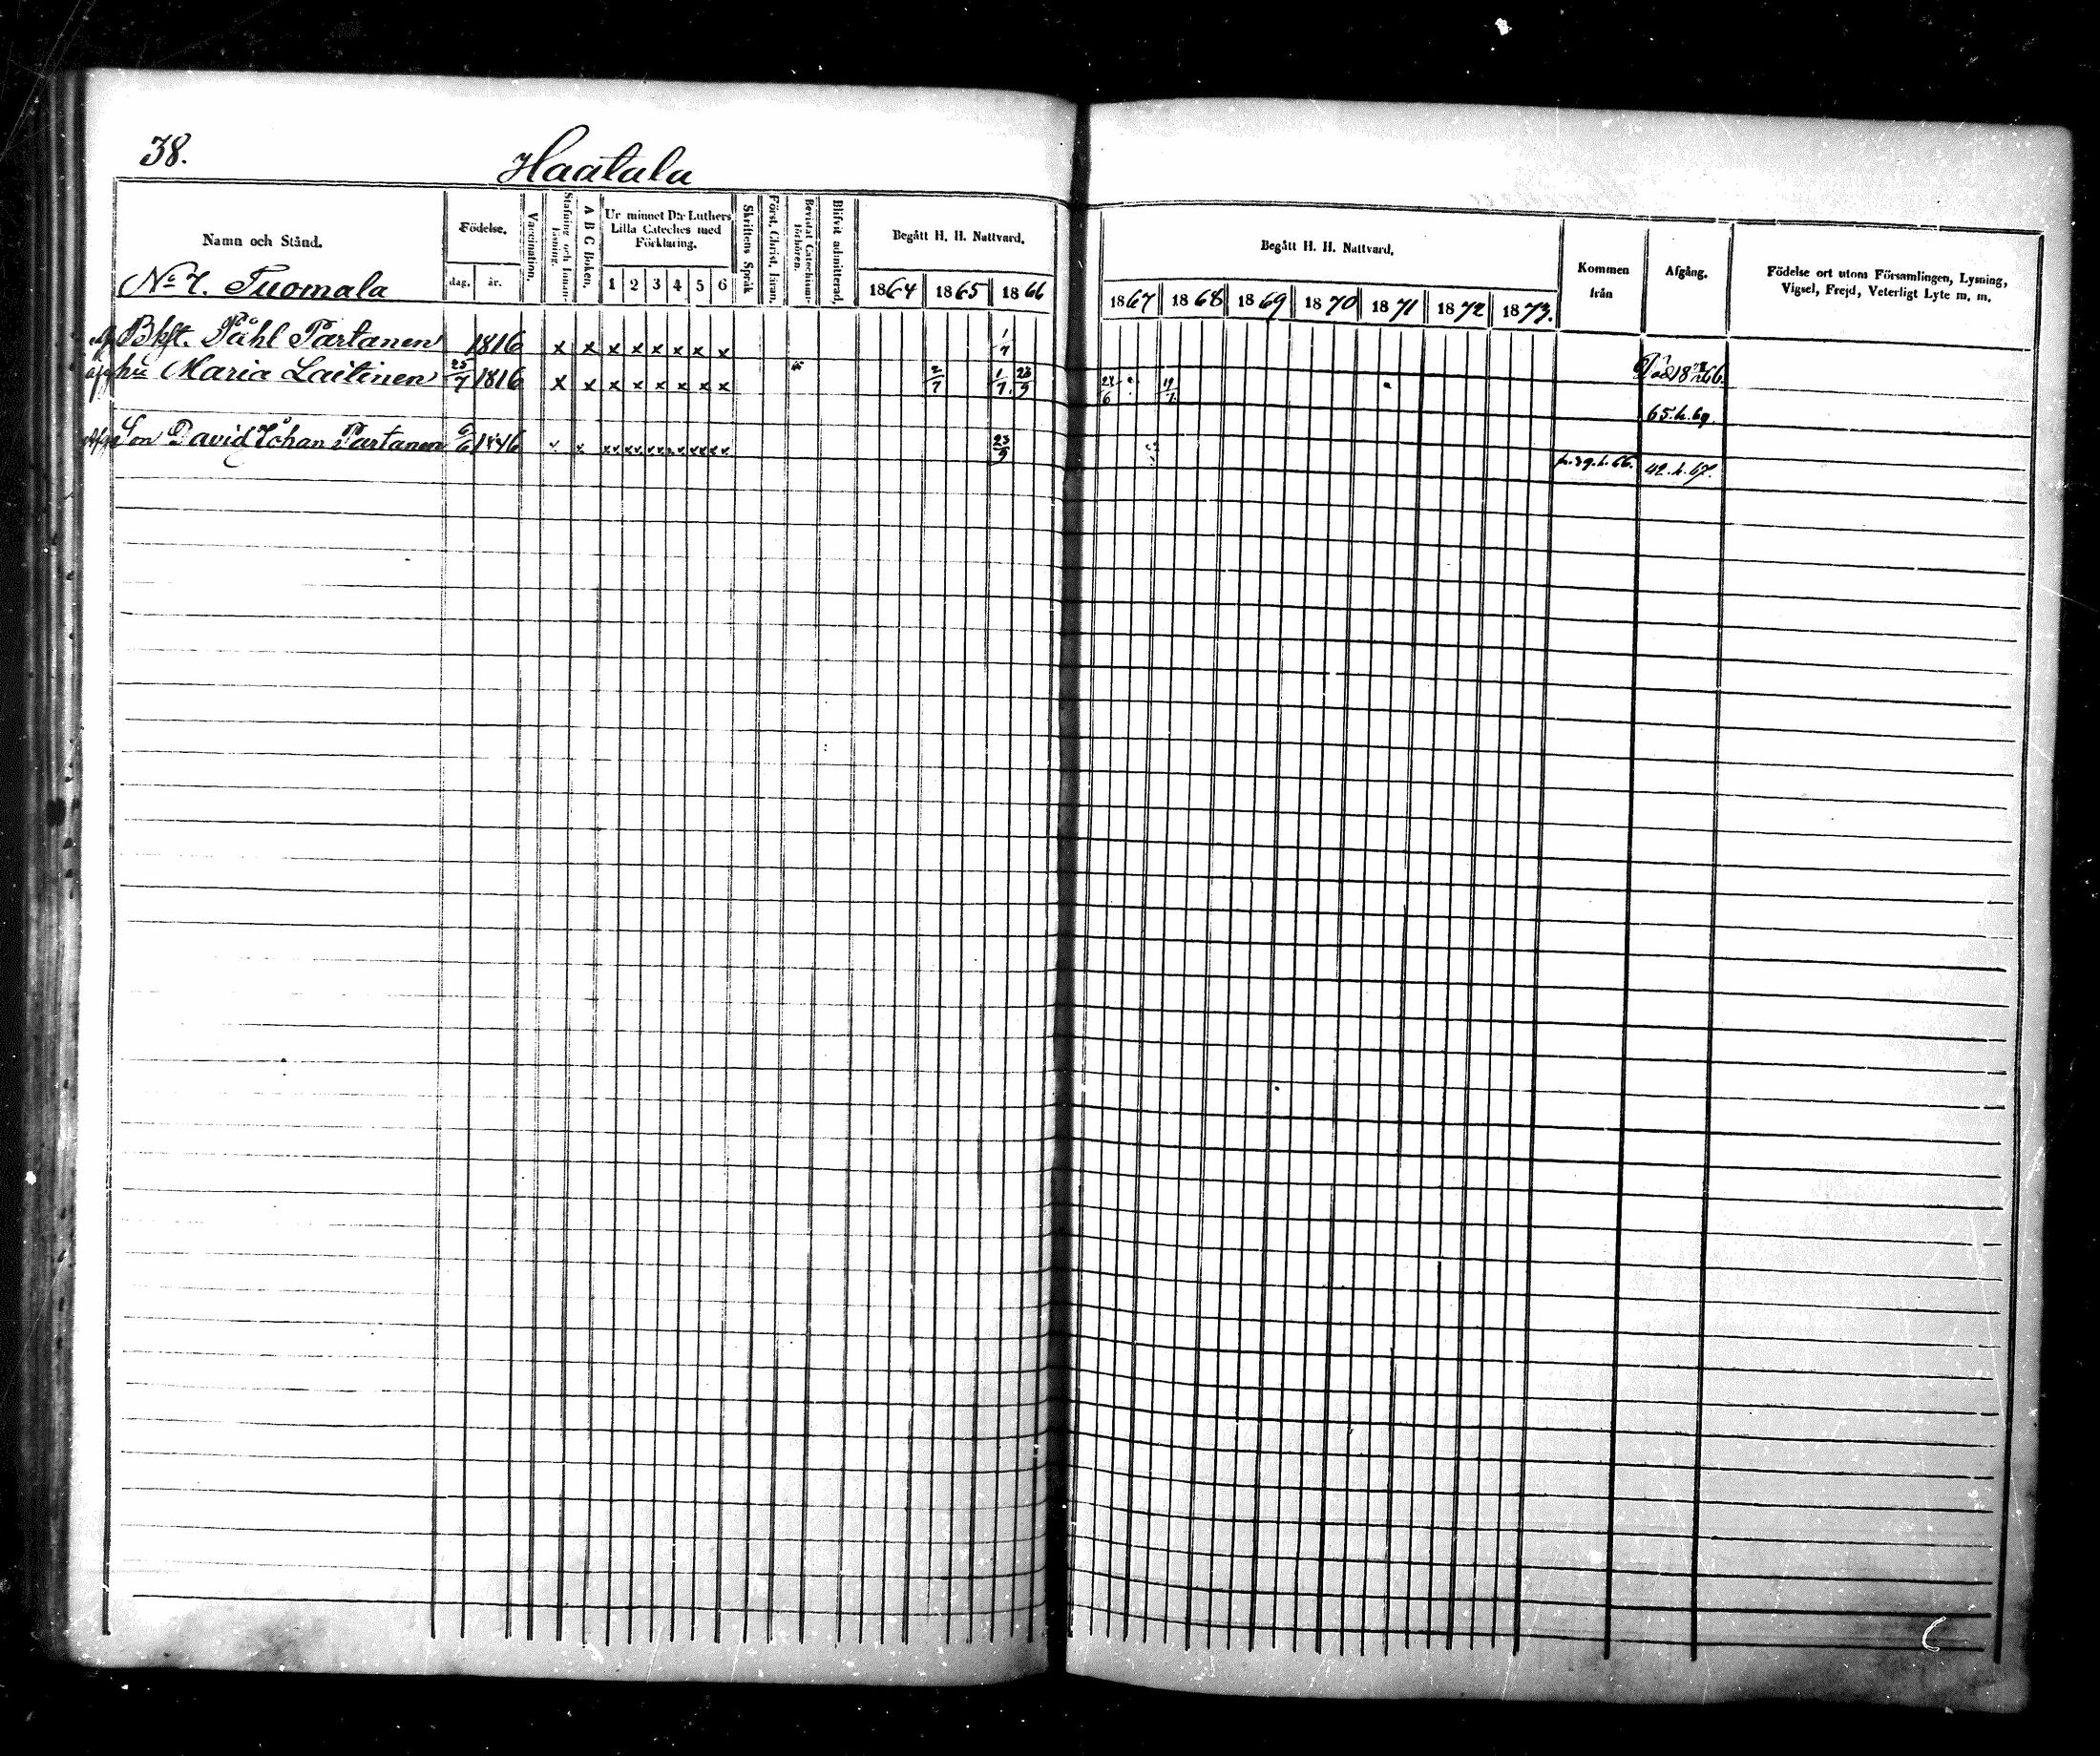 38.
Haatala
Namn och Stånd.
Födelse.
dag. år.
Vaccination.
Stafning och Innan-läsning.
A B C Boken.
Ur minnet D:r Luthers Lilla Cateches med Förklaring.
1 2 3 4 5 6
Skriftens Språk
Först. Christ. läran.
Bevistat Catechism-förhören.
Blifvit admitterad.
Begått H. H. Nattvard.
1864 1865 1866
Begått H. H. Nattvard.
1867 1868 1869 1870 1871 1872 1873.
Kommen från
Afgång.
Födelse ort utom Församlingen, Lysning,
Vigsel, Frejd, Veterligt Lyte m. m.
No 7. Tuomala
Påhl Partanen 1816 x x x x x x x x 1/7
hu Maria Laitinen 25/7 1816 x x x x x x x x 2/7 1/7. 23/9 24/6 65.h.69.
Son David Johan Partanen 1846 x x 23/9 42.h.67.